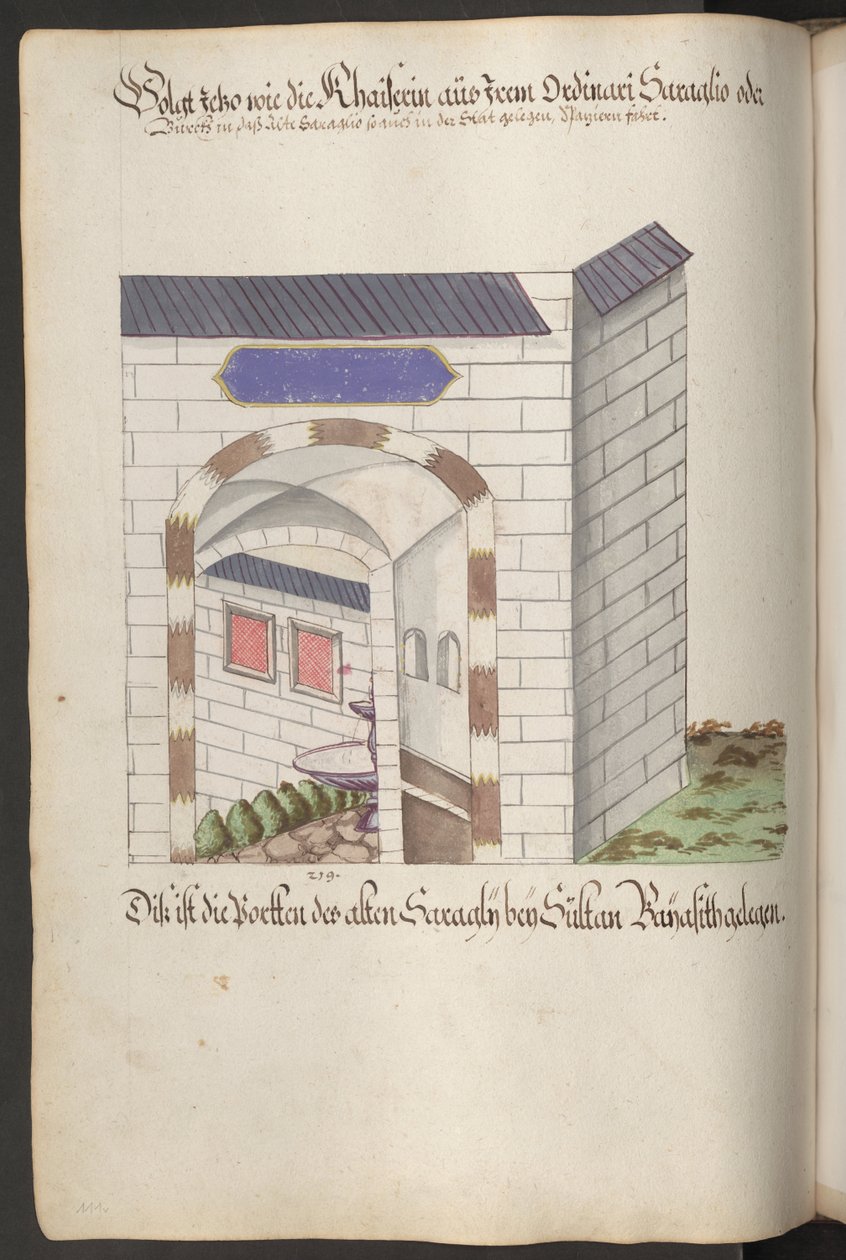 Volgt Jetzo wie die Khaiserin aüs Jrem Ordinari Saraglio oder
Burckh in daß Alte Saraglio so auch in der Stat gelegen, Spatziern fahrt.
219.
Diß ist die Portten des alten Saraglÿ beÿ Sültan Baÿasith gelegen.
111v